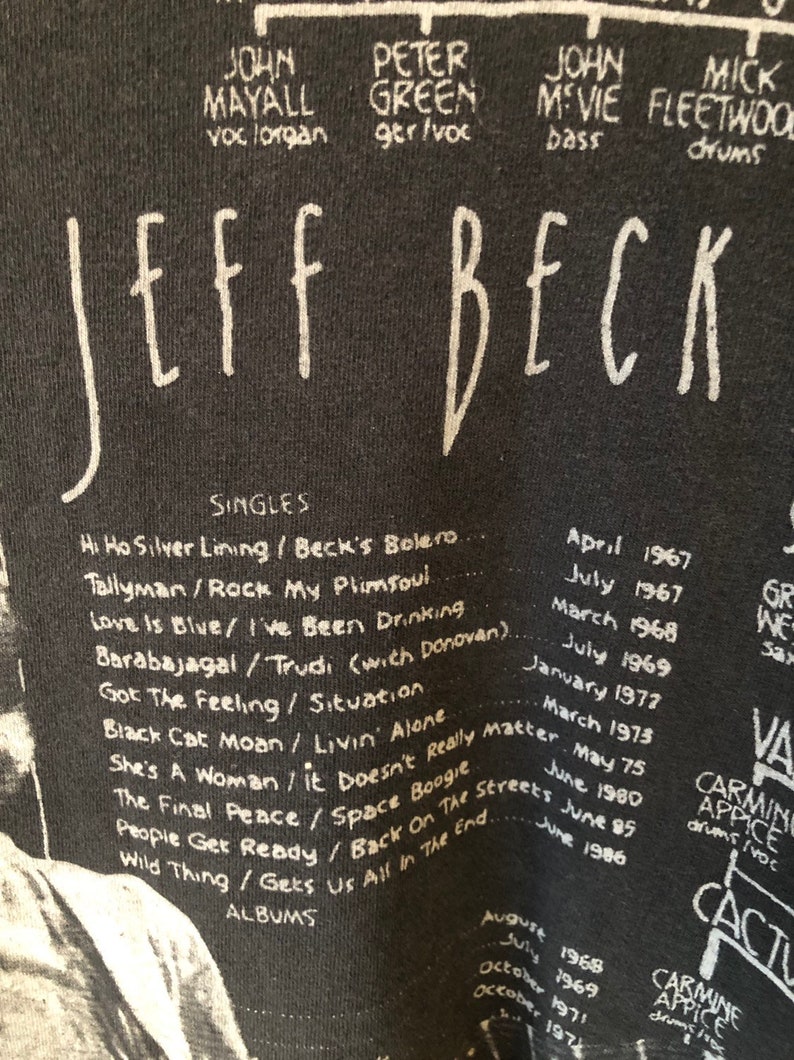 JOHN MAYALL voc/organ
PETER GREEN gtr/voc
JOHN McVIE bass
MICK FLEETWOOD drums
JEFF BECK
SINGLES
Hi Ho Silver Lining / Beck's Bolero.... April 1967
Tallyman / Rock My Plimsoul.... July 1967
Love Is Blue / I've Been Drinking March 1968
Barabajagal / Trudi (with Donovan).... July 1969
Got The Feeling / Situation January 1972
Black Cat Moan / Livin' Alone.... March 1973
She's A Woman / it Doesn't Really Matter May 75
The Final Peace / Space Boogie.... June 1980
People Get Ready / Back On The Streets June 85
Wild Thing / Gets Us All In The End.... June 1986
ALBUMS
August 1968
July 1969
October 1971
October
VA
CARMINE APPICE drums/voc
CACTU
CARMINE APPICE drums/voc